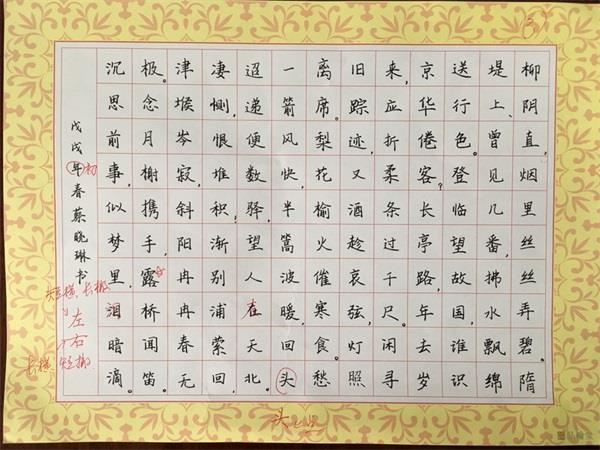 柳阴直,烟里丝丝弄碧。隋
堤上、曾见几番,拂水飘绵
送行色。登临望故国,谁识
京华倦客?长亭路,年去岁
来,应折柔条过千尺。闲寻
旧踪迹,又酒趁哀弦,灯照
离席。梨花榆火催寒食。愁
一箭风快,半篙波暖,回头
迢递便数驿,望人在天北。
凄恻,恨堆积,渐别浦萦回,
津堠岑寂,斜阳冉冉春无
极。念月榭携手,露桥闻笛。
沉思前事,似梦里,泪暗滴。
戊戌年春蔡晓琳书
初
短横、长撇
左
右
长横、短撇
头